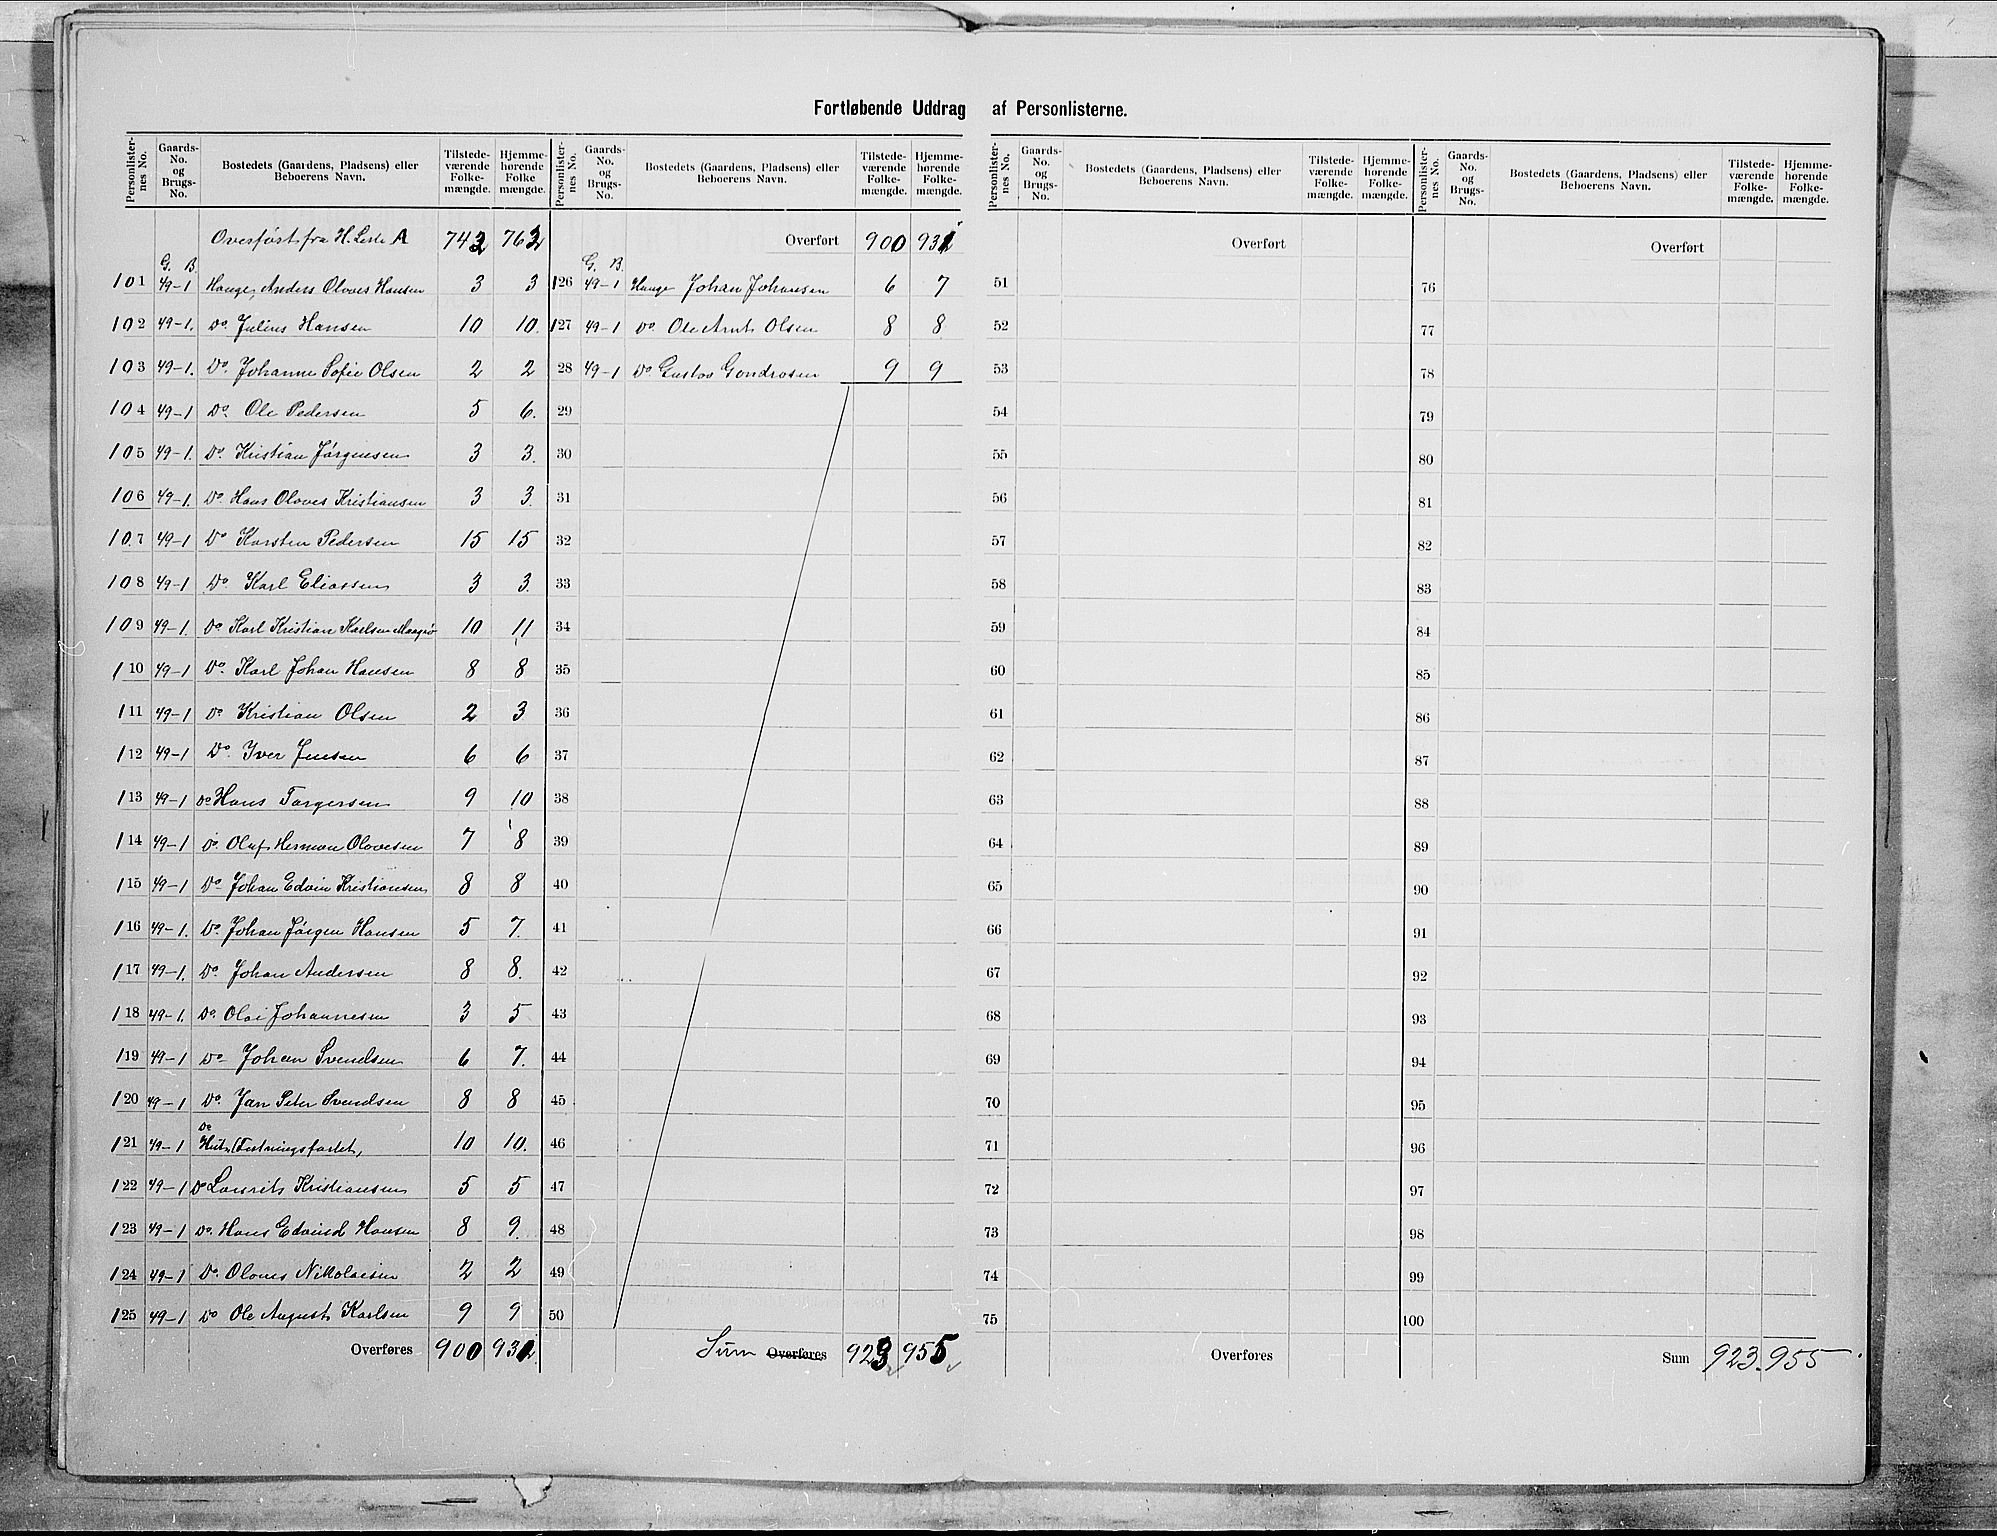 Fortløbende Uddrag af Personlisterne.
Personlister-nes No. Gaards-No. og Brugs-No. Bostedets (Gaardens, Pladsens) eller Beboerens Navn. Tilstede-værende Folke-mængde. Hjemme-hørende Folke-mængde.
Overført fra H. Liste A 742 763
G. B.
101 49-1 Hauge, Anders Olaves Hansen 3 3
102 49-1. Do. Julius Hansen 10 10.
103 49-1. Do. Johanne Sofie Olsen 2 2
104 49-1 Do. Ole Pedersen 5 6.
105 49-1. Do. Kristian Jørgensen 3 3.
106 49-1. Do. Hans Olaves Kristiansen 3 3.
107 49-1 Do Karsten Pedersen 15 15
108 49-1 Do. Karl Eliassen 3 3.
109 49-1. Do Karl Kristian Karlsen Maagerø 10 11
110 49-1 Do. Karl Johan Hansen 8 8
111 49-1 Do Kristian Olsen 2 3
112 49-1 Do. Iver Jensen 6 6
113 49-1 Do Hans Torgersen 9 10
114 49-1 Do. Oluf Herman Olavesen 7 8
115 49-1 Do Johan Edvin Kristiansen 8 8
116 49-1. Do. Johan Jørgen Hansen 5 7.
117 49-1. Do. Johan Andersen 8 8.
118 49-1. Do. Olai Johannesen 3 5
119 49-1 Do Johan Svendsen 6 7.
120 49-1 Do. Jan Peter Svendsen 8 8
Do
121 49-1 (Festningsfortet, 10 10.
122 49-1 Do Lauritz Kristiansen 5 5
123 49-1 Do. Hans Edvind Hansen 8 9.
124 49-1 Do. Olaves Nikolaisen 2 2
125 49-1 Do Ole August Karlsen 9 9
Overføres 900 931.
Personlister-nes No. Gaards-No. og Brugs-No. Bostedets (Gaardens, Pladsens) eller Beboerens Navn. Tilstede-værende Folke-mængde. Hjemme-hørende Folke-mængde.
Overført 900 931
G. B.
126 49-1 Hauge Johan Johansen 6 7
127 49-1 Do. Ole Arnt Olsen 8 8
28 49-1 Do Gustav Gondrosen 9 9
29
30
31
32
33
34
35
36
37
38
39
40
41
42
43
44
45
46
47
48
49
50
Sum Overføres 923 955
Personlister-nes No. Gaards-No. og Brugs-No. Bostedets (Gaardens, Pladsens) eller Beboerens Navn. Tilstede-værende Folke-mængde. Hjemme-hørende Folke-mængde.
Overført
51
52
53
54
55
56
57
58
59
60
61
62
63
64
65
66
67
68
69
70
71
72
73
74
75
Overføres
Personlister-nes No. Gaards-No. og Brugs-No. Bostedets (Gaardens, Pladsens) eller Beboerens Navn. Tilstede-værende Folke-mængde. Hjemme-hørende Folke-mængde.
Overført
76
77
78
79
80
81
82
83
84
85
86
87
88
89
90
91
92
93
94
95
96
97
98
99
100
Sum 923. 955